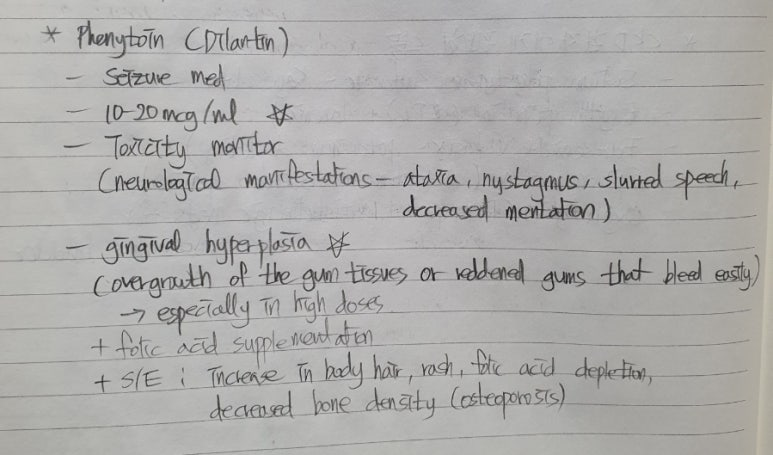 * Phenytoin (Dilantin)
- Seizure med
- 10-20 mcg/ml ☆
- Toxicity monitor
(neurological manifestations - ataxia, nystagmus, slurred speech,
decreased mentation)
- gingival hyperplasia ☆
(overgrowth of the gum tissues or reddened gums that bleed easily)
→ especially in high doses
+ folic acid supplementation
+ S/E : Increase in body hair, rash, folic acid depletion,
decreased bone density (osteoporosis)